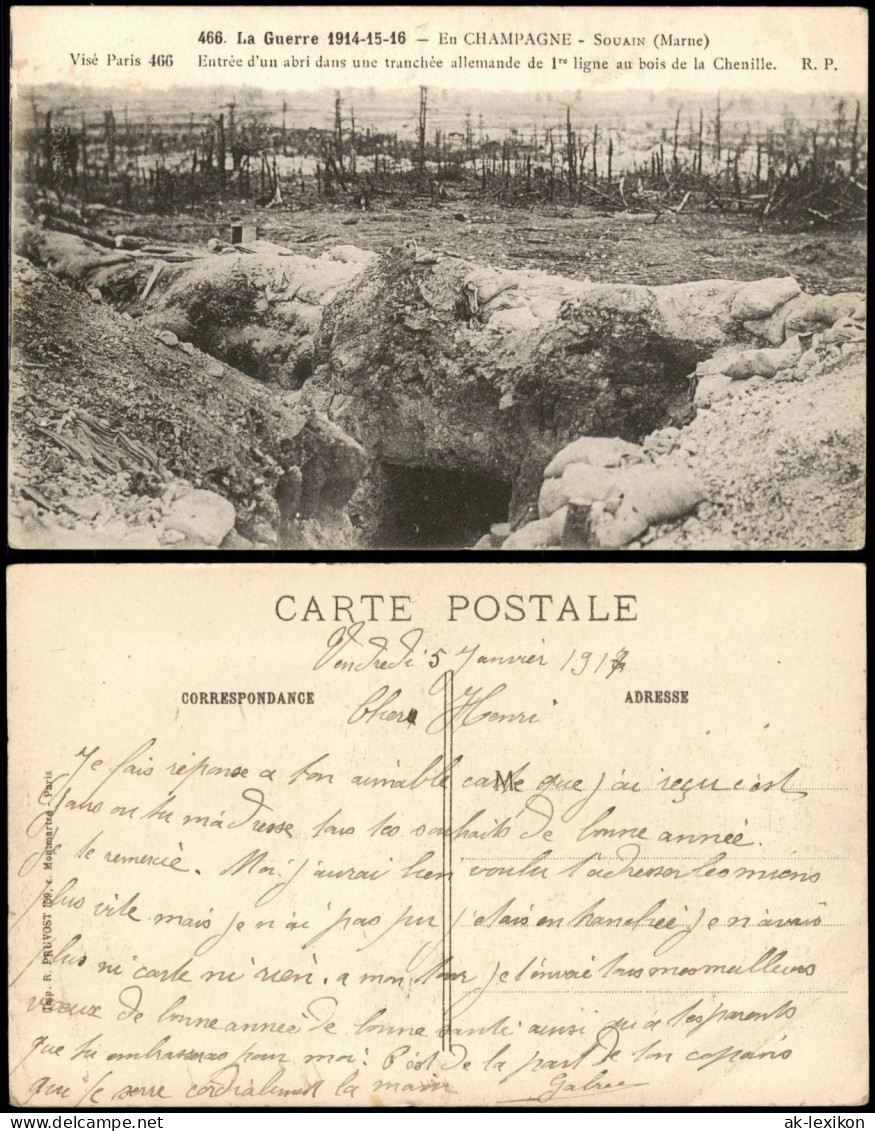 466. La Guerre 1914-15-16 — En CHAMPAGNE - SOUAIN (Marne)
Visé Paris 466 Entrée d'un abri dans une tranchée allemande de 1re ligne au bois de la Chenille. R. P.
CARTE POSTALE
Vendredi 5 Janvier 1917
CORRESPONDANCE ADRESSE
Cher Henri
Je fais réponse a ton aimable carte que j'ai reçu c'est
dans ou tu m'adresse tous tes souhaits de bonne année.
M
je te remercie. Moi j'aurai bien voulu t'adresser les miens
plus vite mais je n'ai pas pu j'etais en je n'avais
plus ni carte ni rien. a mon tour je t'envoie tous mes meilleurs
vœux de bonne année de bonne santé ainsi qu'a tes parents
que tu embrasseras pour moi. C'est de la part de ton copain
qui te serre cordialement la main
Imp. R. PRUVOST 159, r. Montmartre - Paris
ak-lexikon.de